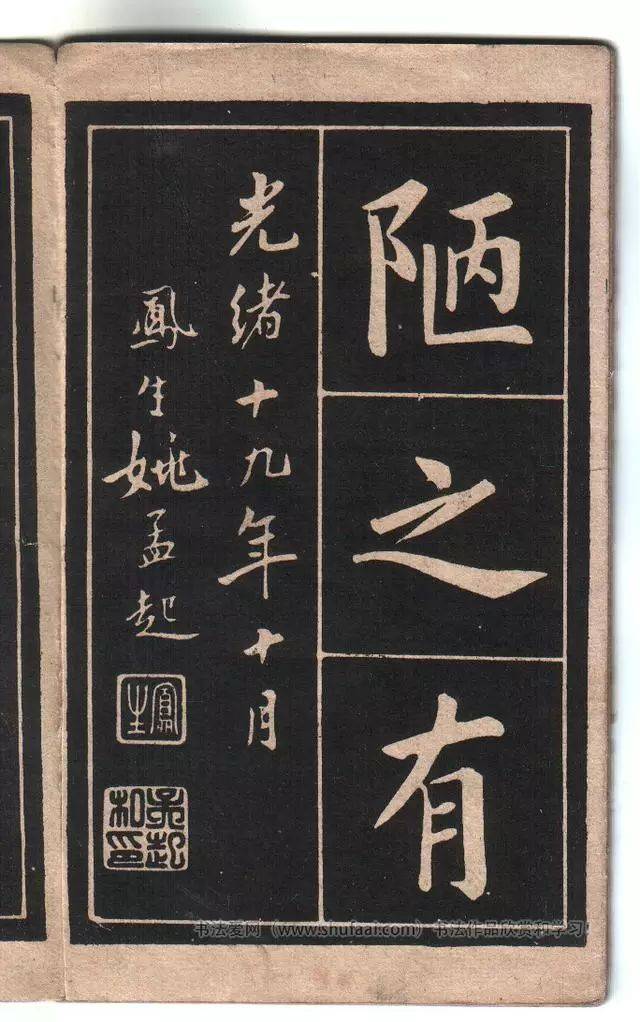 陋之有
光緒十九年十月
鳳生姚孟起
鳳生
孟起和印
书法爱网（www.shufaai.com）书法作品欣赏和学习